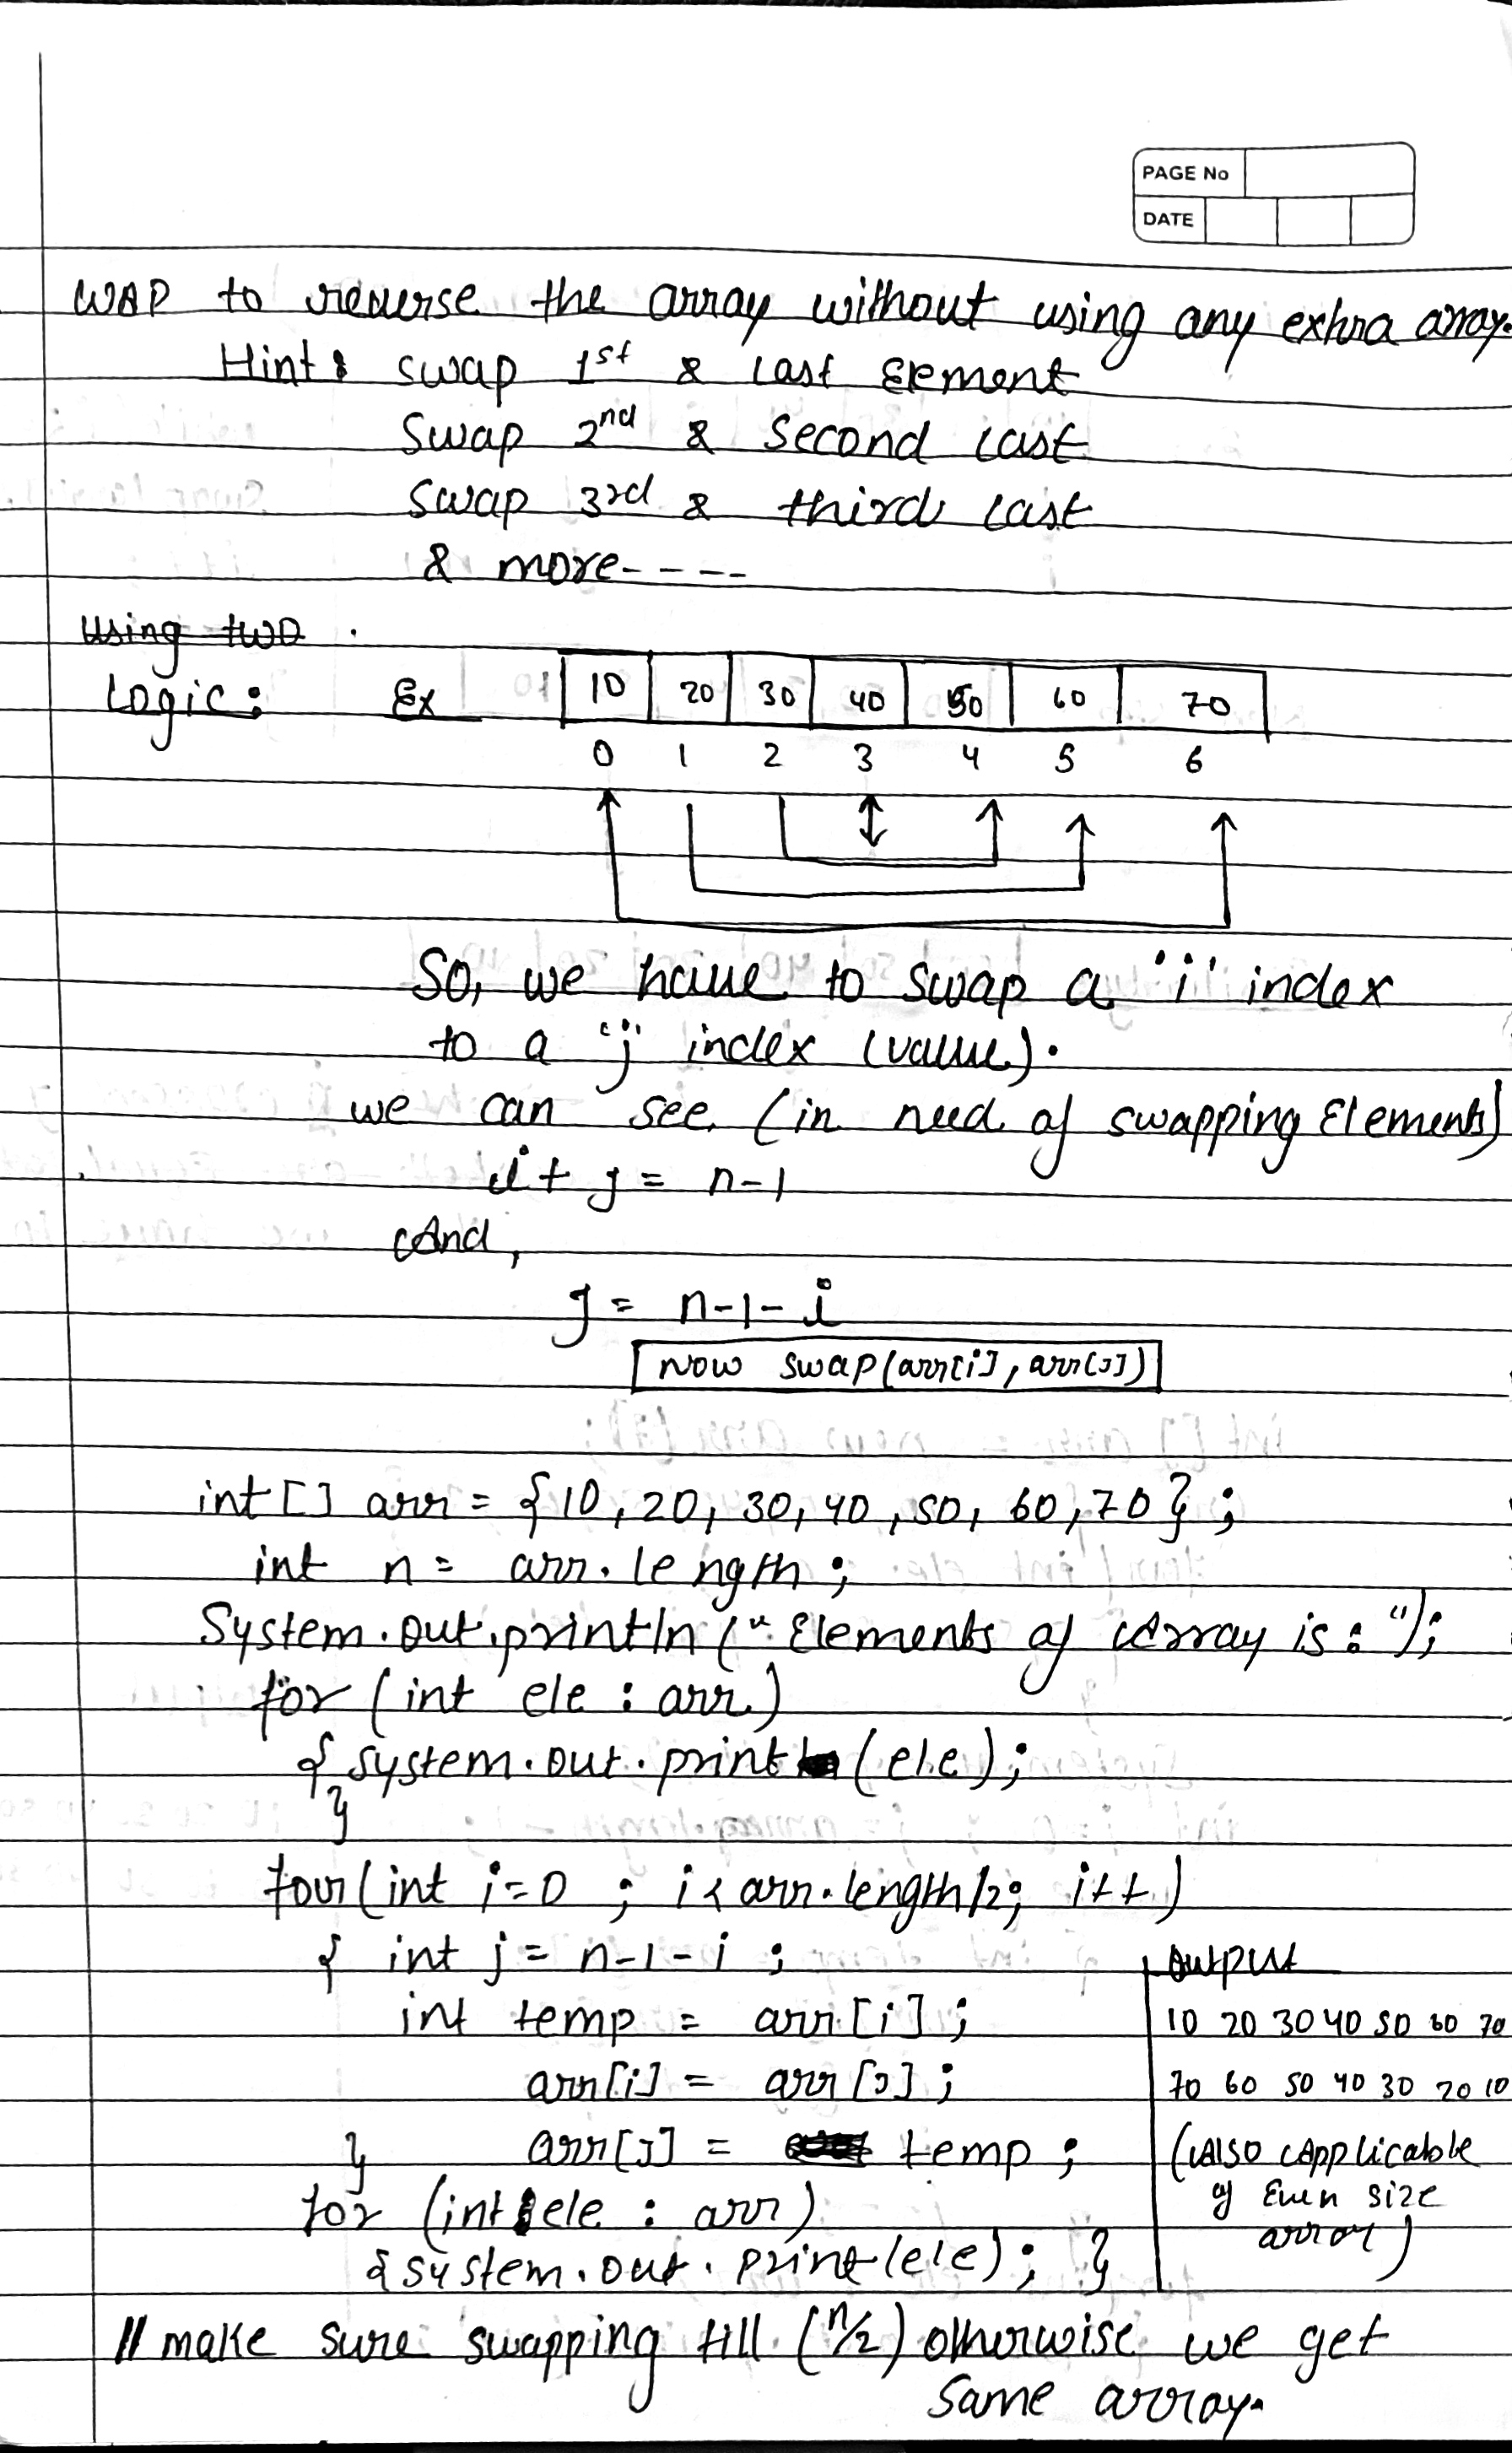 PAGE No
DATE
WAP to reverse the array without using any extra array.
Hint: swap 1st & last Element
Swap 2nd & Second last
Swap 3rd & third last
& more----
Using two
Logic: Ex 10 20 30 40 50 60 70
0 1 2 3 4 5 6
So, we have to swap a 'i' index
to a 'j' index (value).
we can see (in need of swapping Elements)
i + j = n-1
And,
j = n-1-i
Now swap(arr[i], arr[j])
int[] arr = {10, 20, 30, 40, 50, 60, 70};
int n = arr.length;
System.out.println("Elements of Array is:");
for (int ele : arr)
{ system.out.print (ele);
}
for(int i=0 ; i< arr.length/2; i++)
{ int j = n-1-i ;
int temp = arr[i];
arr[i] = arr[j];
} arr[j] = temp;
for (int ele : arr)
{system.out.print(ele); }
Output
10 20 30 40 50 60 70
70 60 50 40 30 20 10
(Also Applicable
of Even size
array)
// make sure swapping till (n/2) otherwise we get
same array.